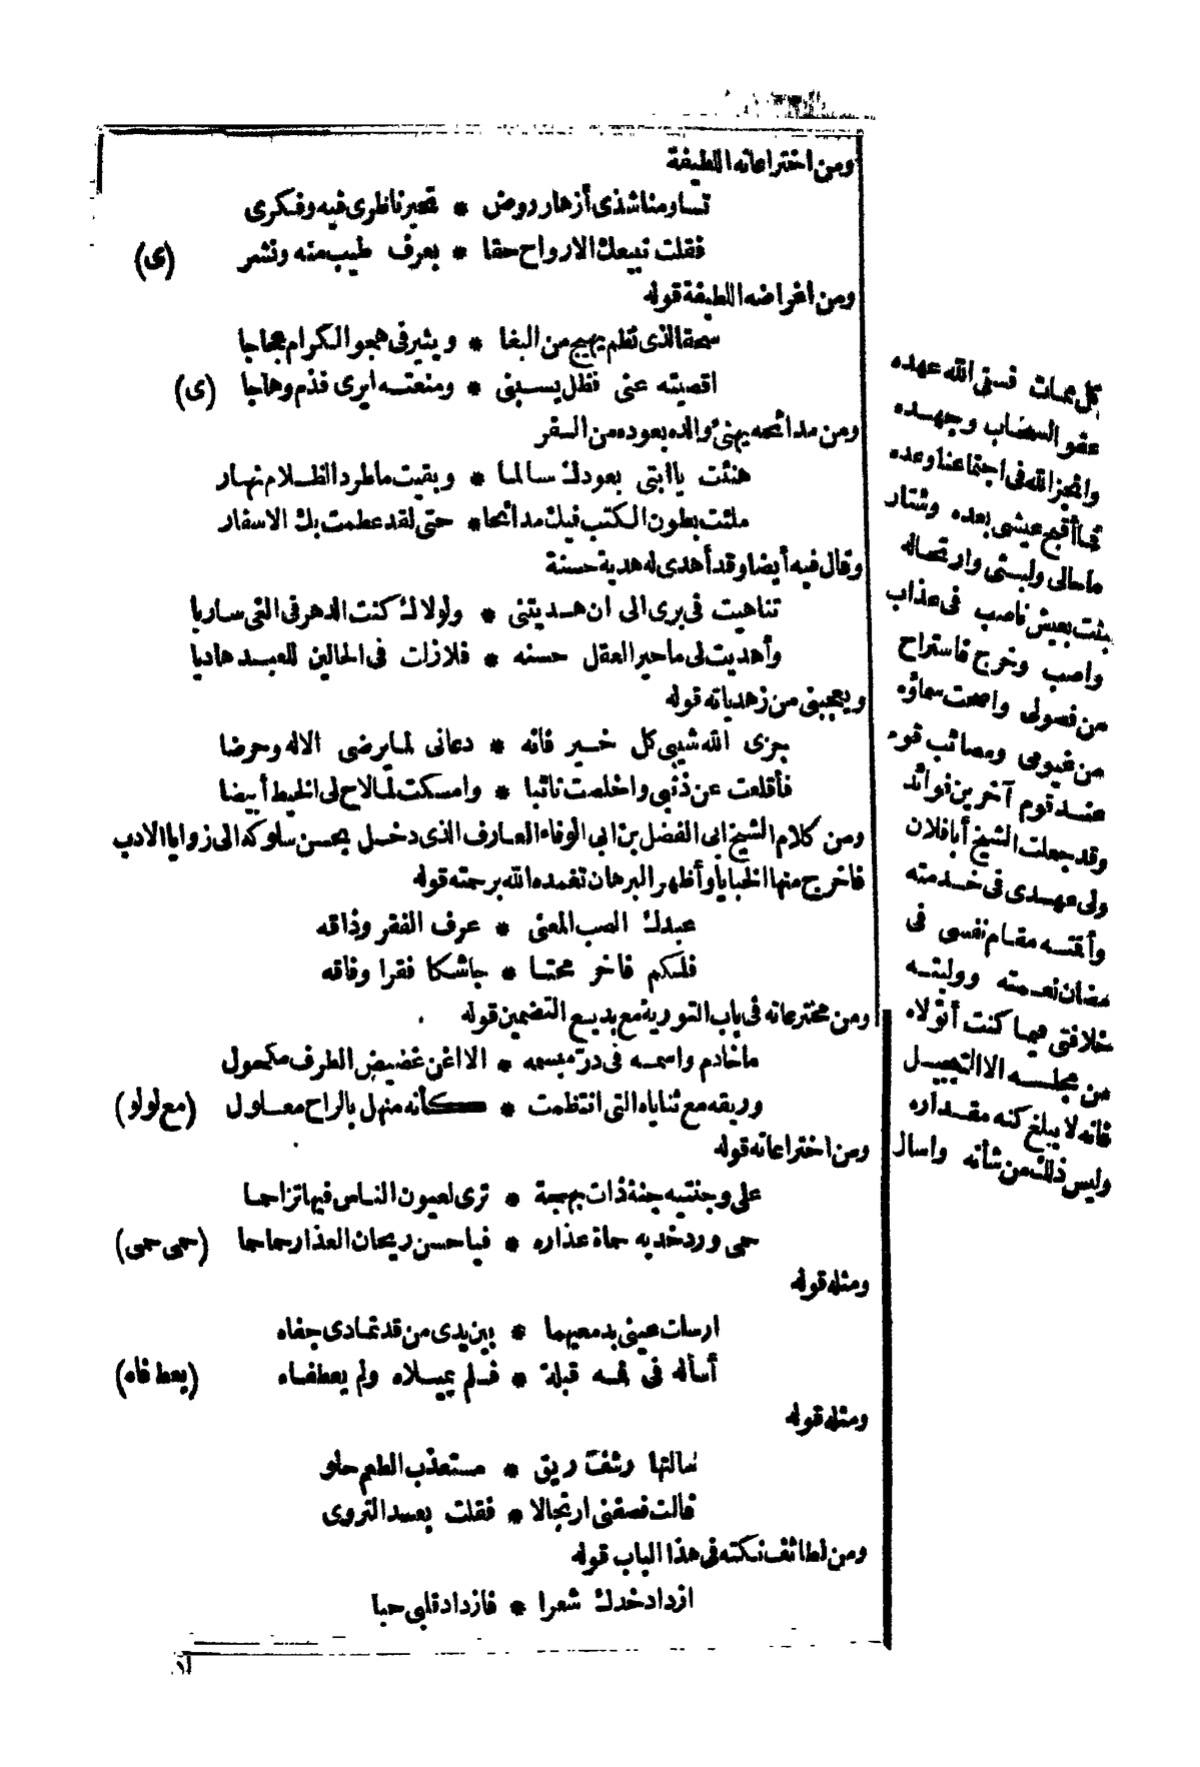 ومن اختراعاته اللطيفة
تساومنا شذى أزهار روض * تحير ناظرى فيه وفكرى
فقلت نبيعك الارواح حقا * بعرف طيب منه ونشر (ى)
ومن اغراضه اللطيفة قوله
سحقا الذى نظم يهيج من البغا * ويثير فى هجو الكرام عجاجا
اقصيته عنى فظل يسبنى * ومنعته ايرى فذم وهاجا (ى)
ومن مدائحه يهنئ والده بعوده من السفر
هنئت ياابتى بعودك سالما * وبقيت ماطرد الظلام نهار
ملئت بطون الكتب فيك مدائحا * حتى لقد عظمت بك الاسفار
وقال فيه أيضا وقد أهدى له هدية حسنة
تناهيت فى برى الى ان هديتنى * ولولاك كنت الدهر فى الغى ساريا
وأهديت لى ماحير العقل حسنه * فلازات فى الحالين للعبد هاديا
ويعجبنى من زهدياته قوله
جزى الله شيبى كل خير فانه * دعانى لما يرضى الاله وحرضا
فأقلعت عن ذنبى واخلصت تائبا * وامسكت لما لاح لى الخيط أبيضا
ومن كلام الشيخ ابى الفضل بن ابى الوفاء العارف الذى دخل بحسن سلوكه الى زوايا الادب
فاخرج منها الخبايا وأظهر البرهان تغمده الله برحمته قوله
عبدك الصب المعنى * عرف الفقر وذاقه
فلكم فاخر محتا * جاشكا فقرا وفاقه
ومن مخترعاته فى باب التورية مع بديع التضمين قوله
ماخادم واسمه فى در مبسمه * الا اغن غضيض الطرف مكحول
وريقه مع ثناياه التى انتظمت * كأنه منهل بالراح معلول (مع لولو)
ومن اختراعاته قوله
على وجنتيه جنة ذات بهجة * ترى لعيون الناس فيها تزاحما
حمى ورد خديه حماة عذاره * فيا حسن ريحان العذار حماحما (حمى حمى)
ومثله قوله
ارسات عينى بدمعيهما * بين يدى من قد تمادى جفاه
أسأله فى فمه قبلة * فلم يميلاه ولم يعطفاه (يعط فاه)
ومثله قوله
سالتها رشف ريق * مستعذب الطعم حلو
قالت فصفنى ارتجالا * فقلت بعد التروى
ومن لطائف نكته فى هذا الباب قوله
ازداد خدك شعرا * فازداد قلبى حبا
كل ممات فسقى الله عهده
عفو السحاب وجهده
وانجز الله فى اجتماعنا وعده
فما أقبح عيشى بعده وشتار
ماحالى ولبثى وارتحاله
بثت بعيش ناصب فى عذاب
واصب وخرج فاستراح
من فسولى واصحت سماؤه
من غيومى ومصائب قوم
عند قوم آخرين فوائد
وقد جعلت الشيخ أبا فلان
ولى عهدى فى خدمته
وأقمته مقام نفسى فى
نعمته ووليته
خلافتى فيما كنت أتولاه
من مجلسه الا التبجيل
فانه لا يبلغ كنه مقداره
وليس ذلك من شأنه واسال